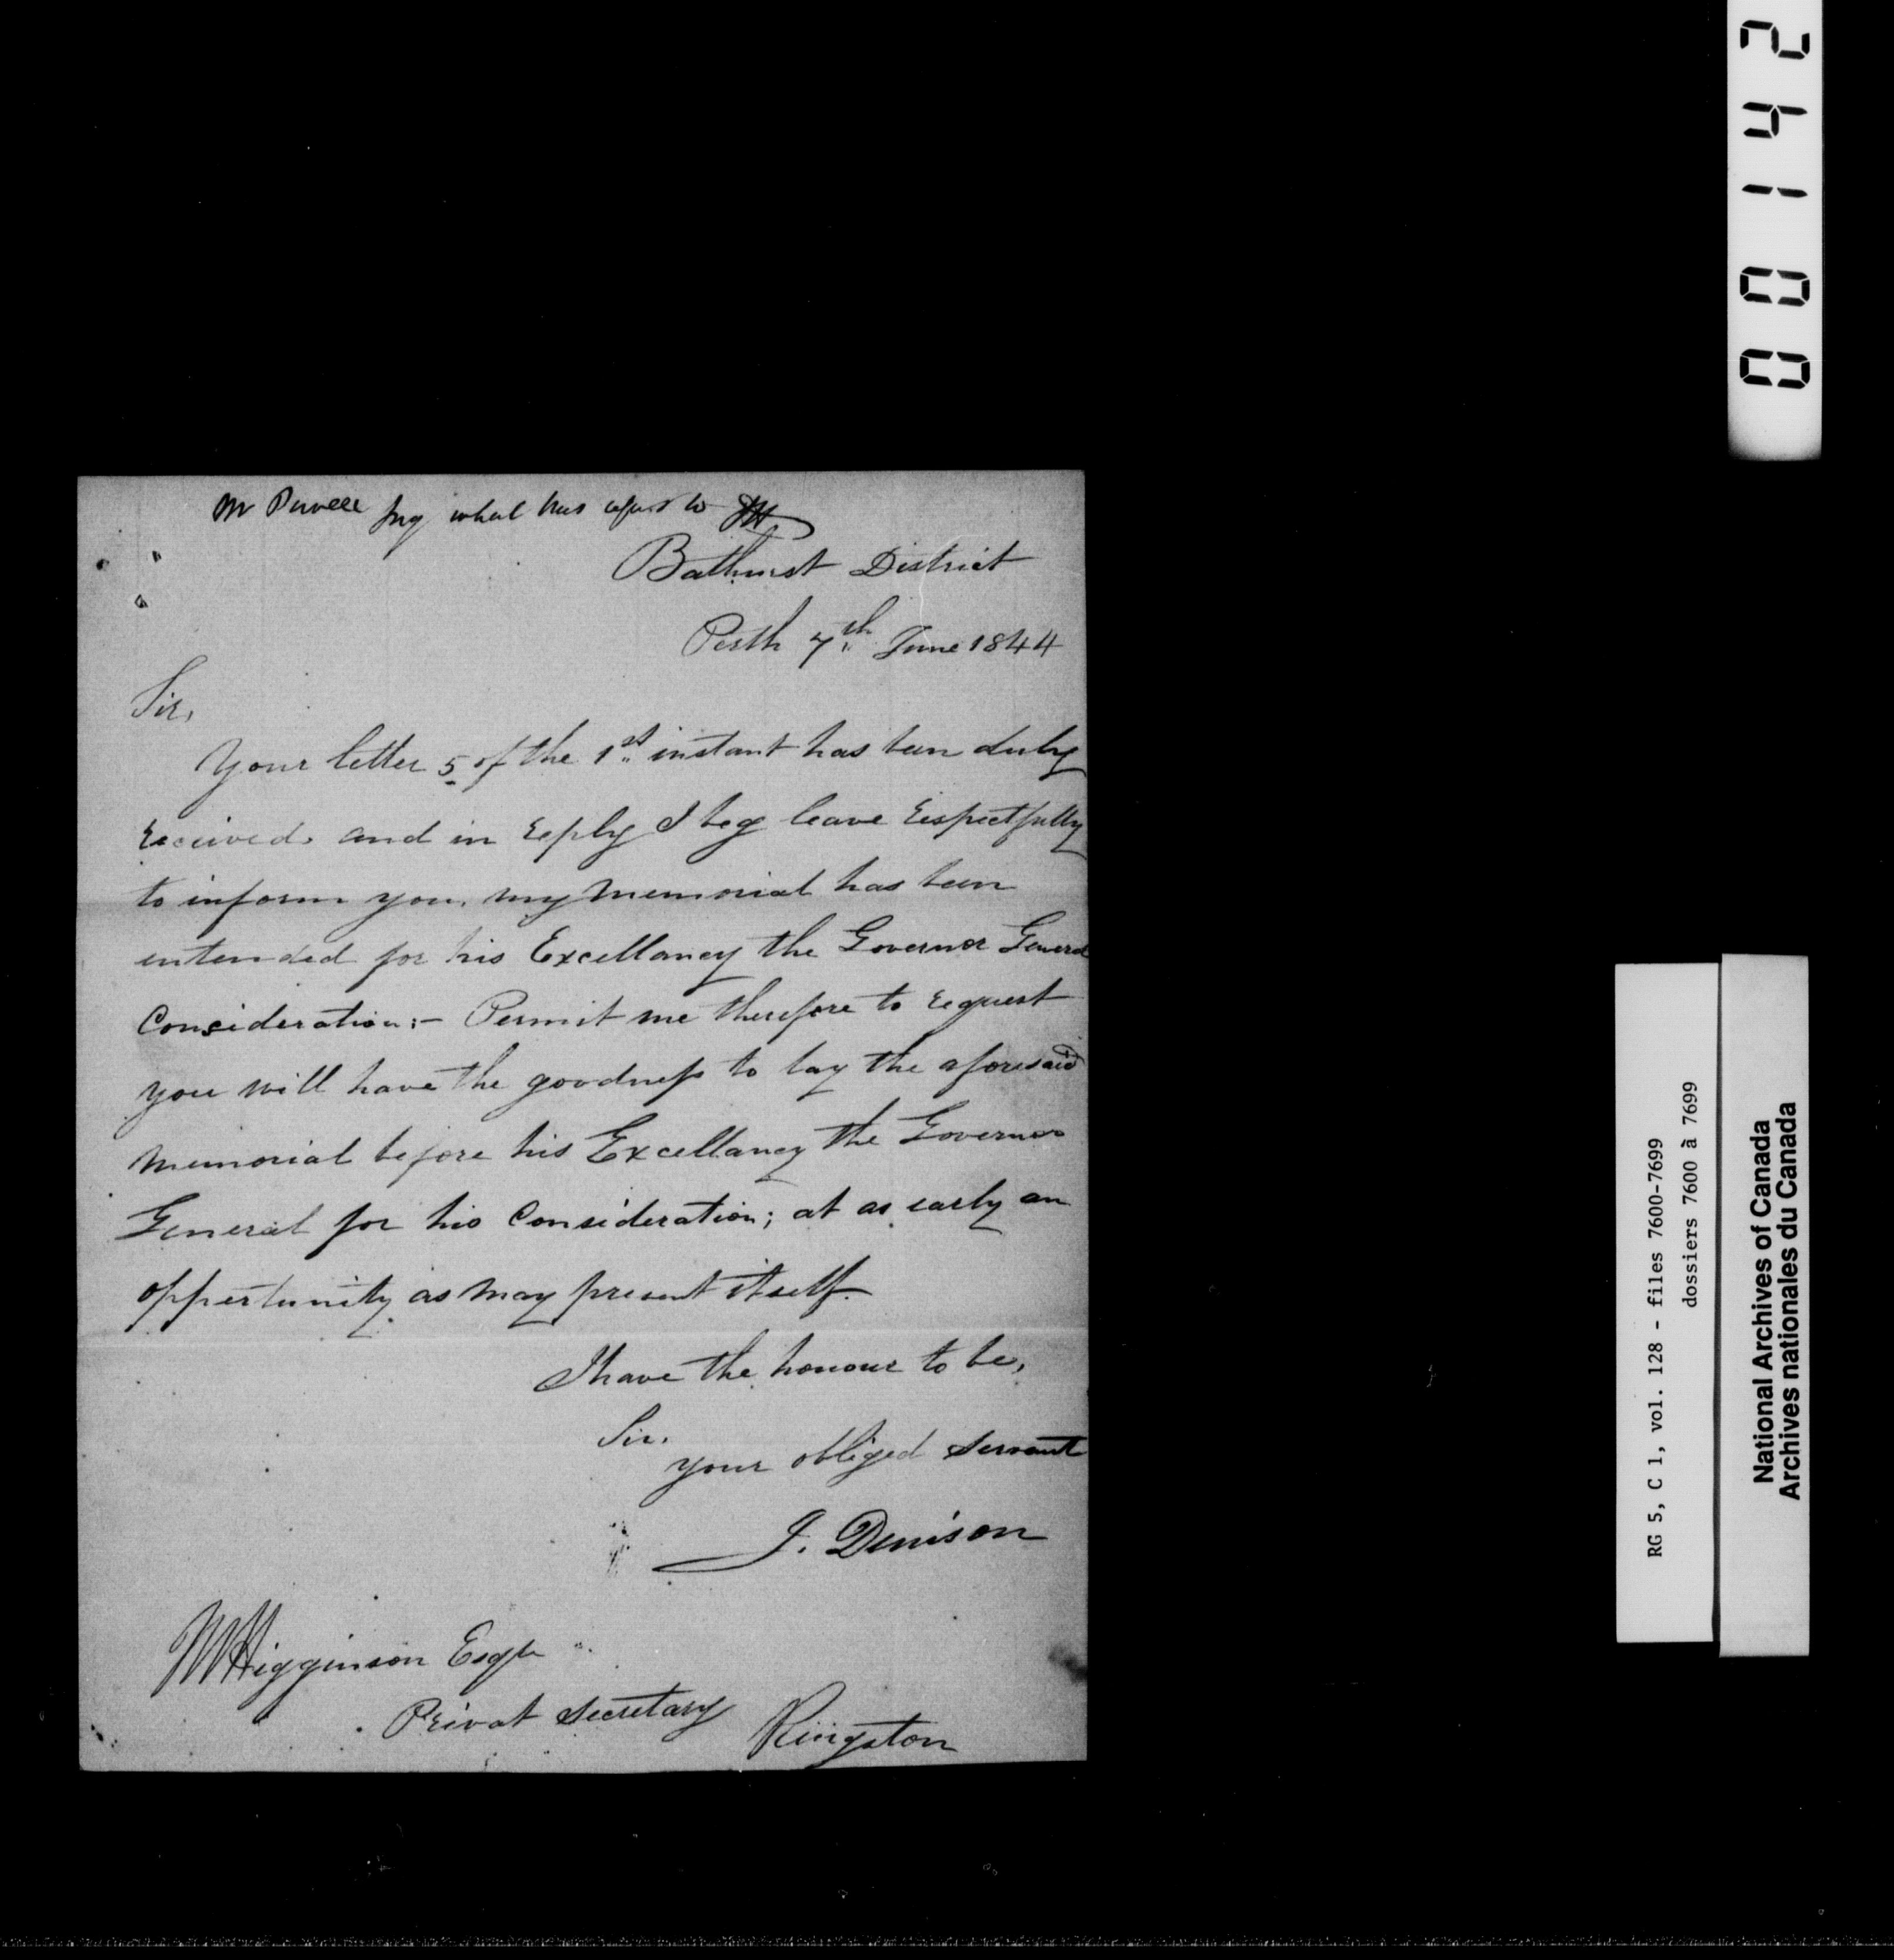 Mr Powell what has to
Bathurst District
Perth 7th June 1844
Sir,
Your letter 5 of the 1st instant has been duly
received, and in reply I beg leave respectfully
to inform you, my memorial has been
intended for his Excellancy the Governor General
Consideration:– Permit me therefore to request
you will have the goodness to lay the aforesaid
memorial before his Excellancy the Governor
General for his Consideration; at as early an
oppertunity as may present itself.
I have the honour to be,
Sir.
your obliged servant
J. Denison
Higginson Esqr
Privat Secretary Kingston
00142
RG 5, C 1, vol. 128 - files 7600-7699
dossiers 7600 à 7699
National Archives of Canada
Archives nationales du Canada